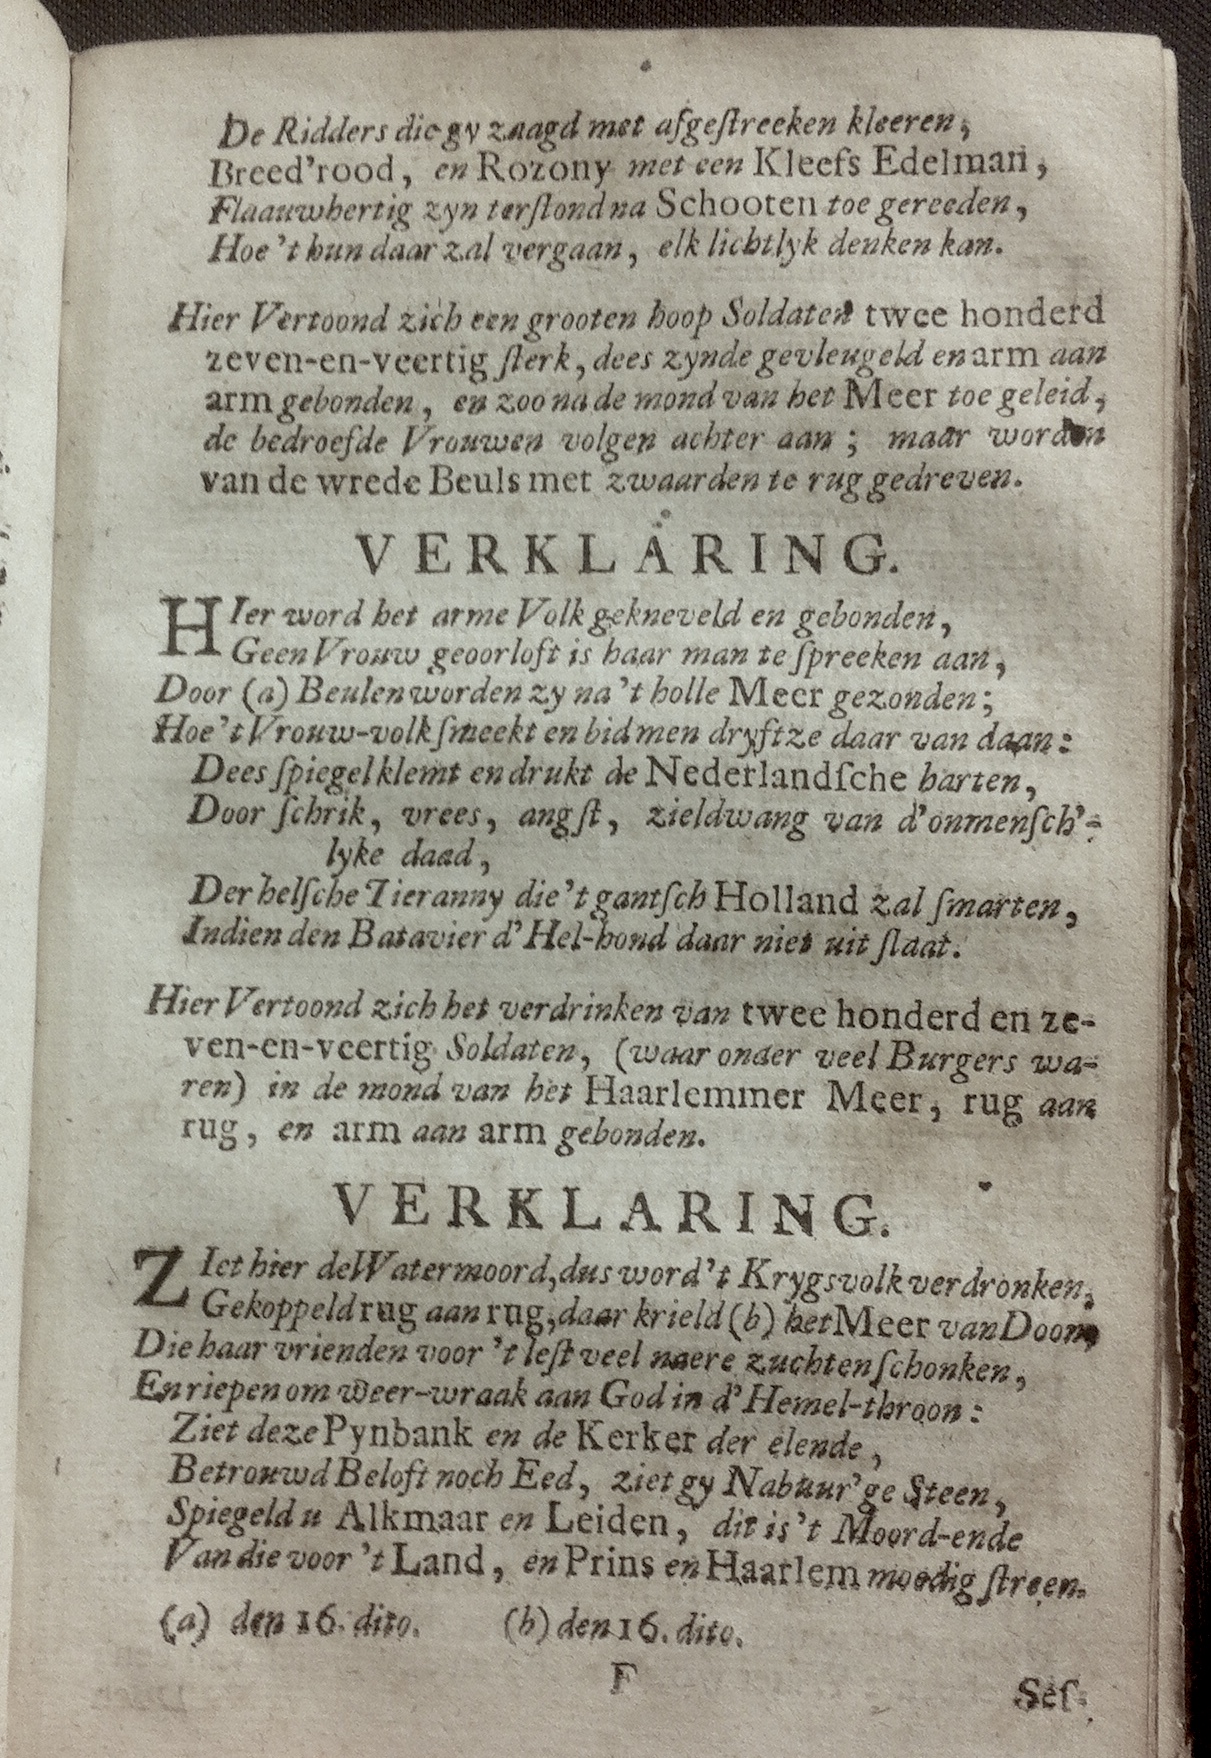 De Ridders die gy zaagd met afgeſtreeken kleeren,
Breed'rood, en Rozony met een Kleefs Edelman,
Flaauwhertig zyn terſtond na Schooten toe gereeden,
Hoe 't hun daar zal vergaan, elk lichtlyk denken kan.
Hier Vertoond zich een grooten hoop Soldaten twee honderd
zeven-en-veertig ſterk, dees zynde gevleugeld en arm aan
arm gebonden, en zoo na de mond van het Meer toe geleid,
de bedroefde Vrouwen volgen achter aan; maar worden
van de wrede Beuls met zwaarden te rug gedreven.
VERKLARING.
HIer word het arme Volk gekneveld en gebonden,
Geen Vrouw geoorloft is haar man te ſpreeken aan,
Door (a) Beulen worden zy na 't holle Meer gezonden;
Hoe 't Vrouw-volk ſmeekt en bid men dryft ze daar van daan:
Dees ſpiegel klemt en drukt de Nederlandſche harten,
Door ſchrik, vrees, angſt, zieldwang van d'onmenſch'-
lyke daad,
Der helſche Tieranny die 't gantſch Holland zal ſmarten,
Indien den Batavier d'Hel-hond daar niet uit ſlaat.
Hier Vertoond zich het verdrinken van twee honderd en ze-
ven-en-veertig Soldaten, (waar onder veel Burgers wa-
ren) in de mond van het Haarlemmer Meer, rug aan
rug, en arm aan arm gebonden.
VERKLARING.
ZIet hier de Watermoord, dus word 't Krygsvolk verdronken,
Gekoppeld rug aan rug, daar krield (b) het Meer van Doon,
Die haar vrienden voor 't leſt veel naere zuchten ſchonken,
En riepen om weer-wraak aan God in d'Hemel-throon:
Ziet deze Pynbank en de Kerker der elende,
Betrouwd Beloft noch Eed, ziet gy Nabuur'ge Steen,
Spiegeld u Alkmaar en Leiden, dit is 't Moord-ende
Van die voor 't Land, en Prins en Haarlem moedig ſtreen.
(a) den 16. dito. (b) den 16. dito.
F
Seſ-